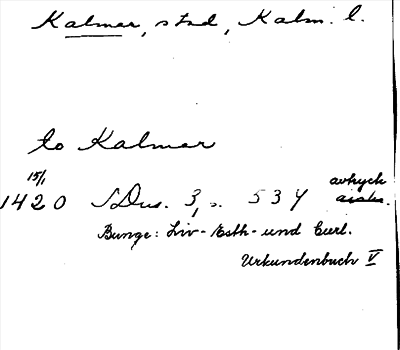 Kalmar, stad, Kalm. l.
to Kalmar
15/1
1420 SDns. 3, s. 534 avtryck
Bunge: Liv- Esth- und Curl.
Urkundenbuch V